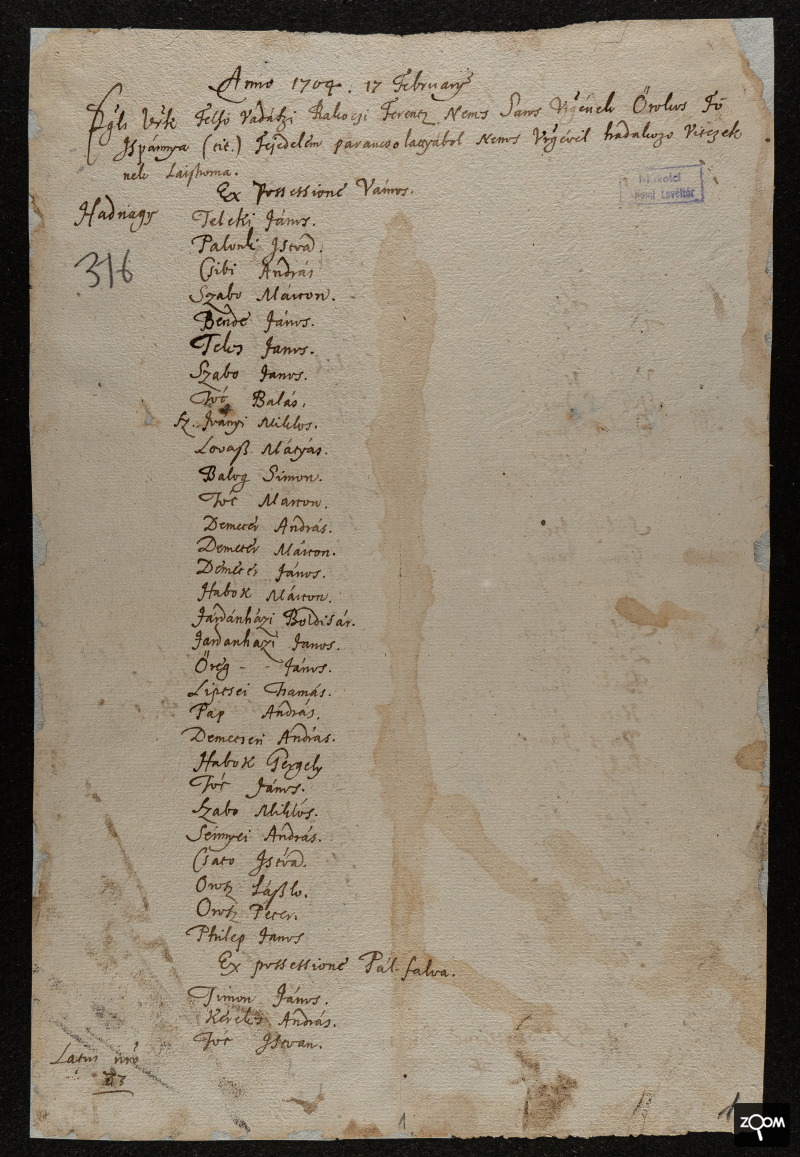 Anno 1704. 17 February
Felső Vadászi Rakoczi Ferentz Nems Saros Vrgének Örökös Fő
Ispánnya (tit.) Fejedelem parancsolattyából Nemes Vrgével hadakozo Vitezek
nek Laistroma.
Ex Possessione Vámos.
Hadnagy Teleki János.
316
Palonki Istvá.
Csibi András
Szabo Márton.
Bende János.
Teles Janos.
Szabo Janos.
Tót Balás.
Sz. Iványi Miklos.
Lovaß Mátyás.
Balog Simon.
Tót Marton.
Demeter András.
Demeter Márton.
Demeter János.
Habok Márton.
Jardánházi Boldisár.
Jardanházi Janos.
Öreg - - János.
Liptsei Thamás.
Pap András.
Demetseri András.
Habok Gergely
Tót János.
Szabo Miklós.
Sennyei András.
Csato Istvá.
Orosz Láßlo.
Orosz Peter.
Philep Janos
Ex possessione Pál-falva.
Timon János.
Kerekes András.
Tót Istvan.
Latus nro
33
Miskolci
Állami Levéltár
1
1
ZOOM